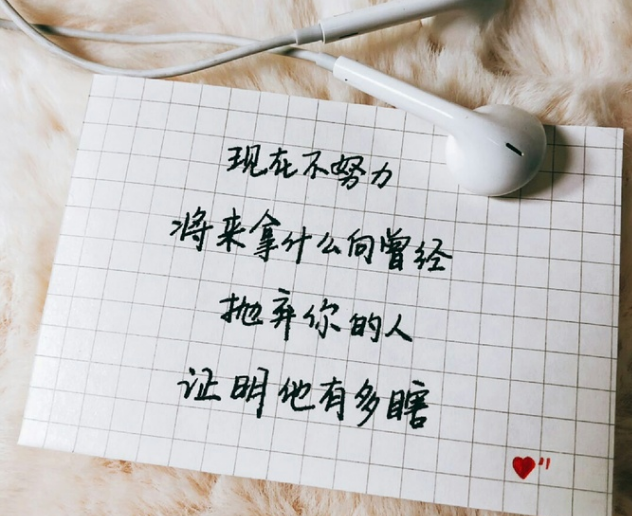 现在不努力
将来拿什么向曾经
抛弃你的人
证明他有多瞎